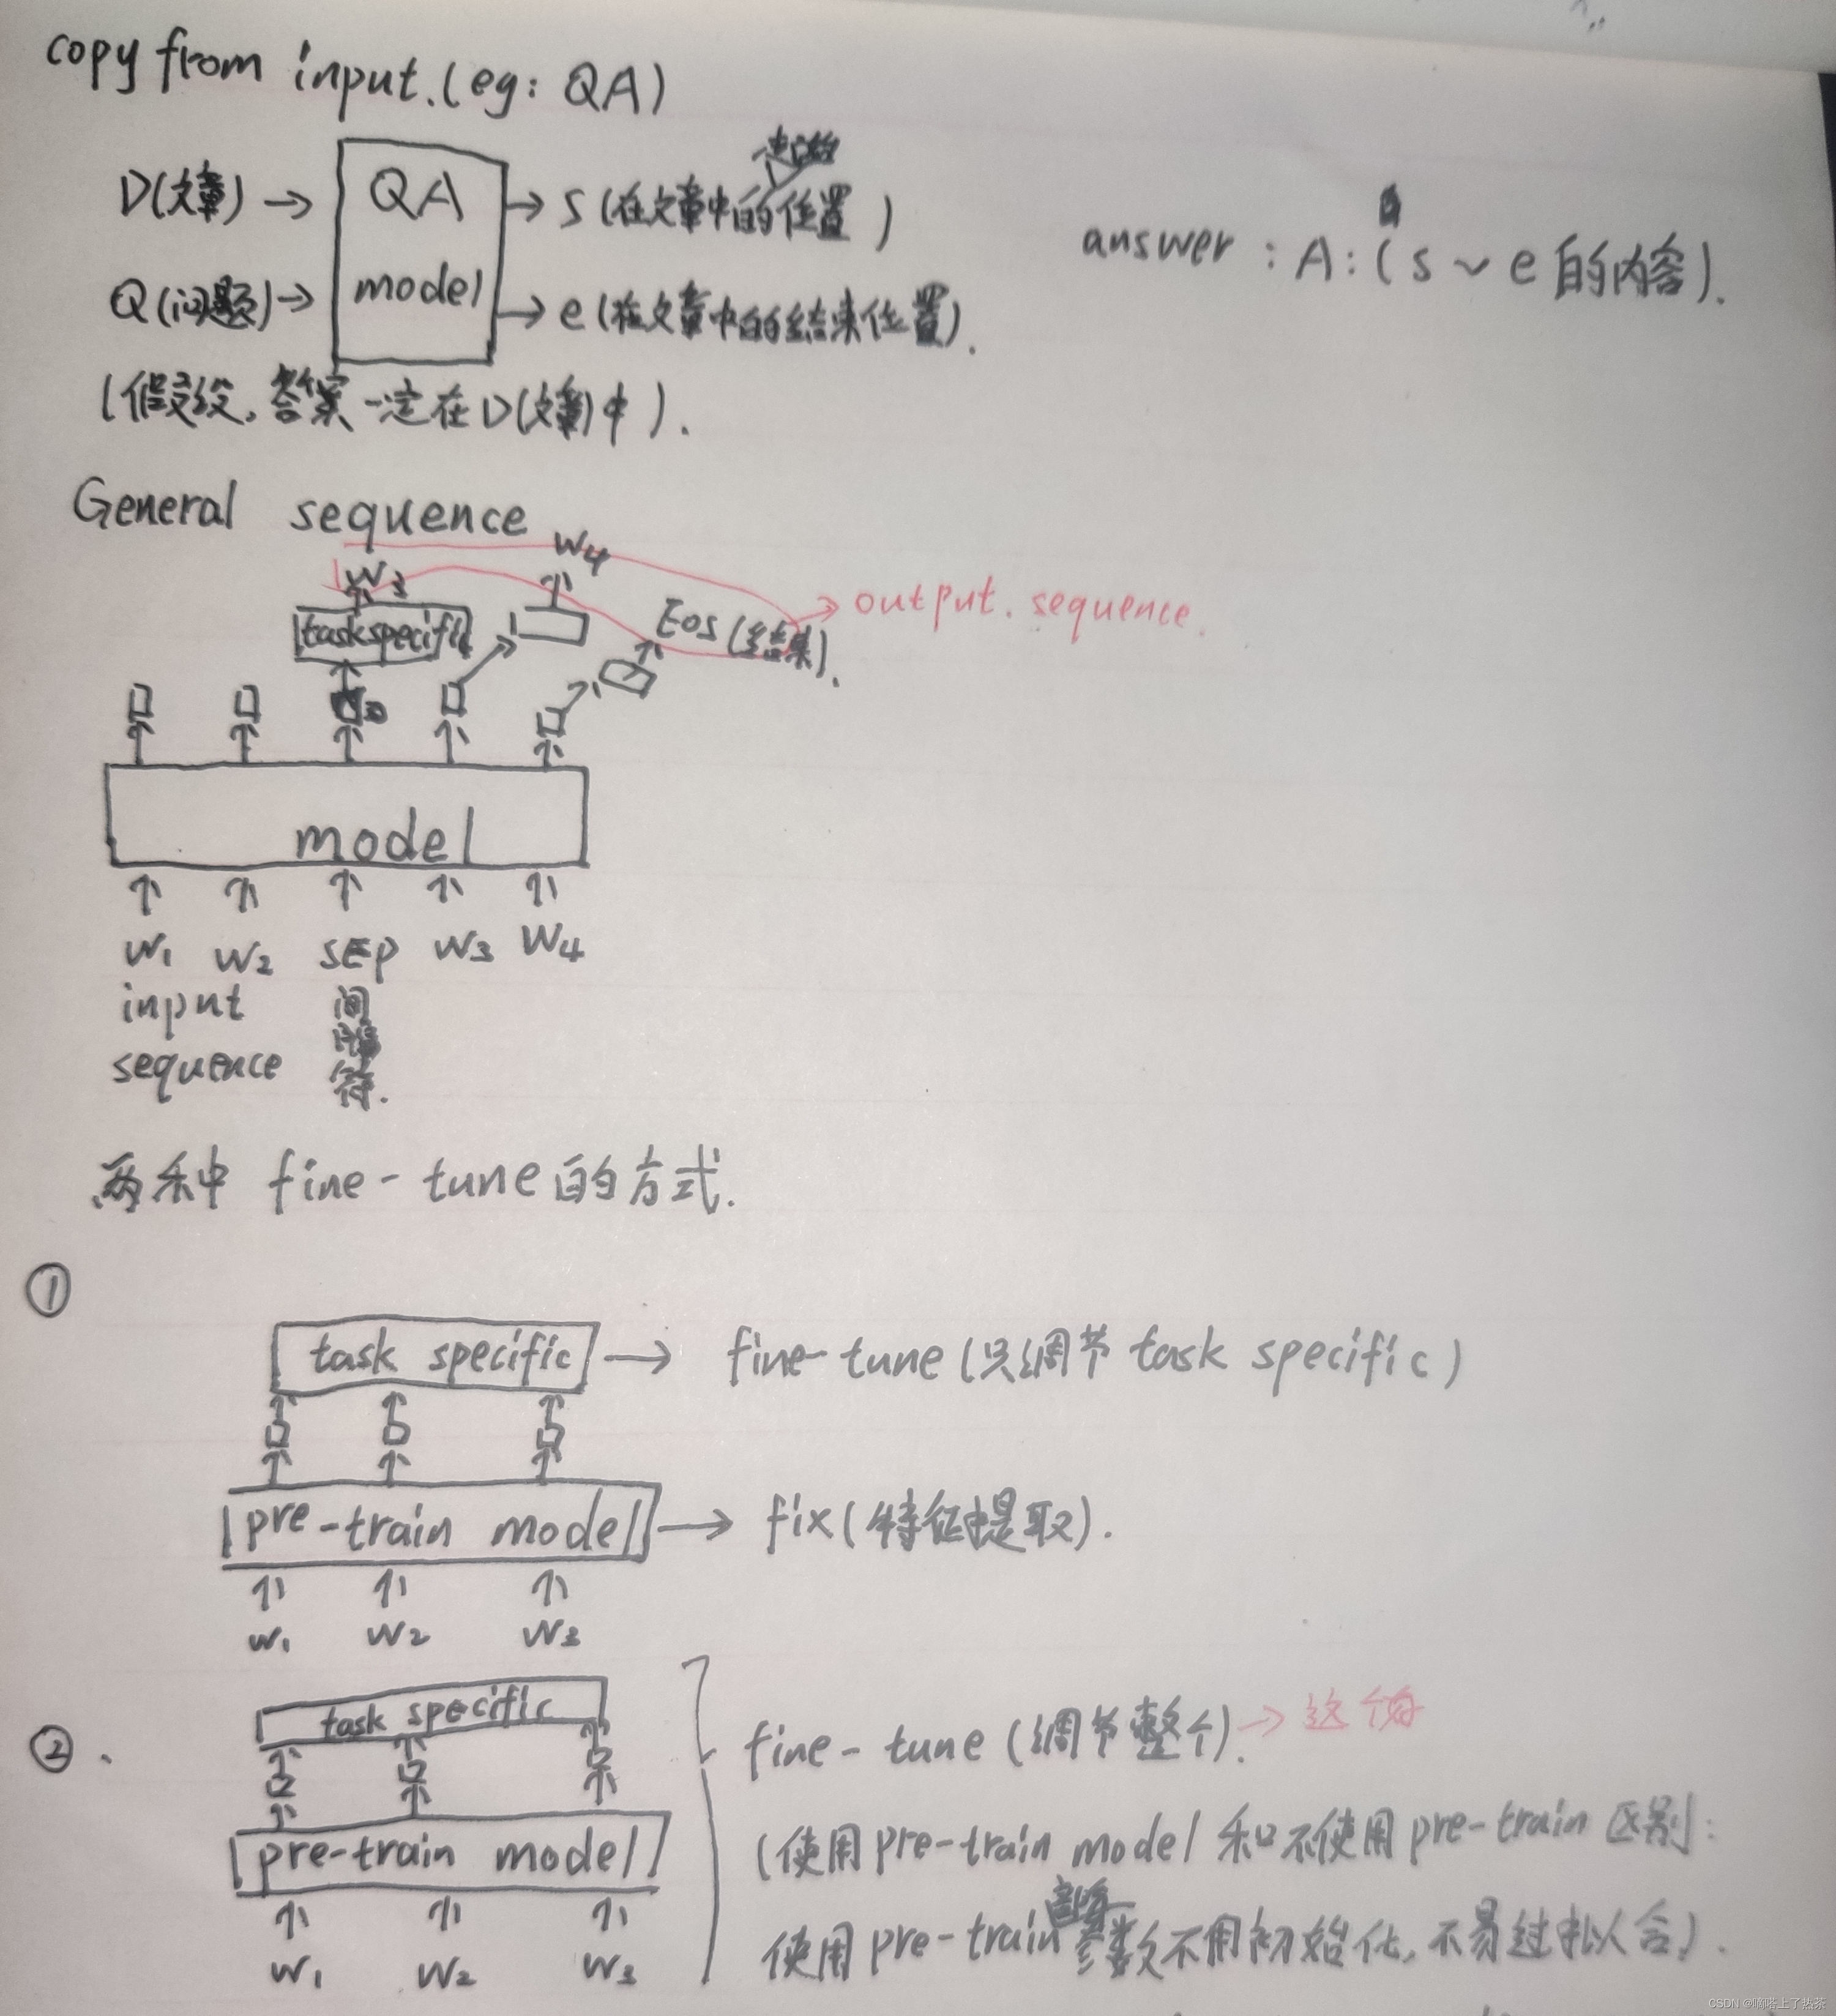 copy from input.(eg: QA)
D(文章) → QA → s (在文章中的起始位置)
Q(问题) → model → e (在文章中的结束位置).
answer : A: ( s ~ e 的内容).
(假设,答案一定在D(文章)中).
General sequence
w4
w3
task specific
Eos (结束).
→ output. sequence.
model
w1 w2 SEP w3 w4
input 间
隔
sequence 符.
两种 fine-tune的方式.
①
task specific → fine-tune (只调节 task specific)
pre-train model → fix(特征提取).
w1 w2 w3
② .
task specific
fine-tune (调节整个). → 这个好
pre-train model
(使用pre-train model 和不使用pre-train 区别:
使用pre-train部分参数不用初始化,不易过拟合).
w1 w2 w3
CSDN @嘀嗒上了热茶